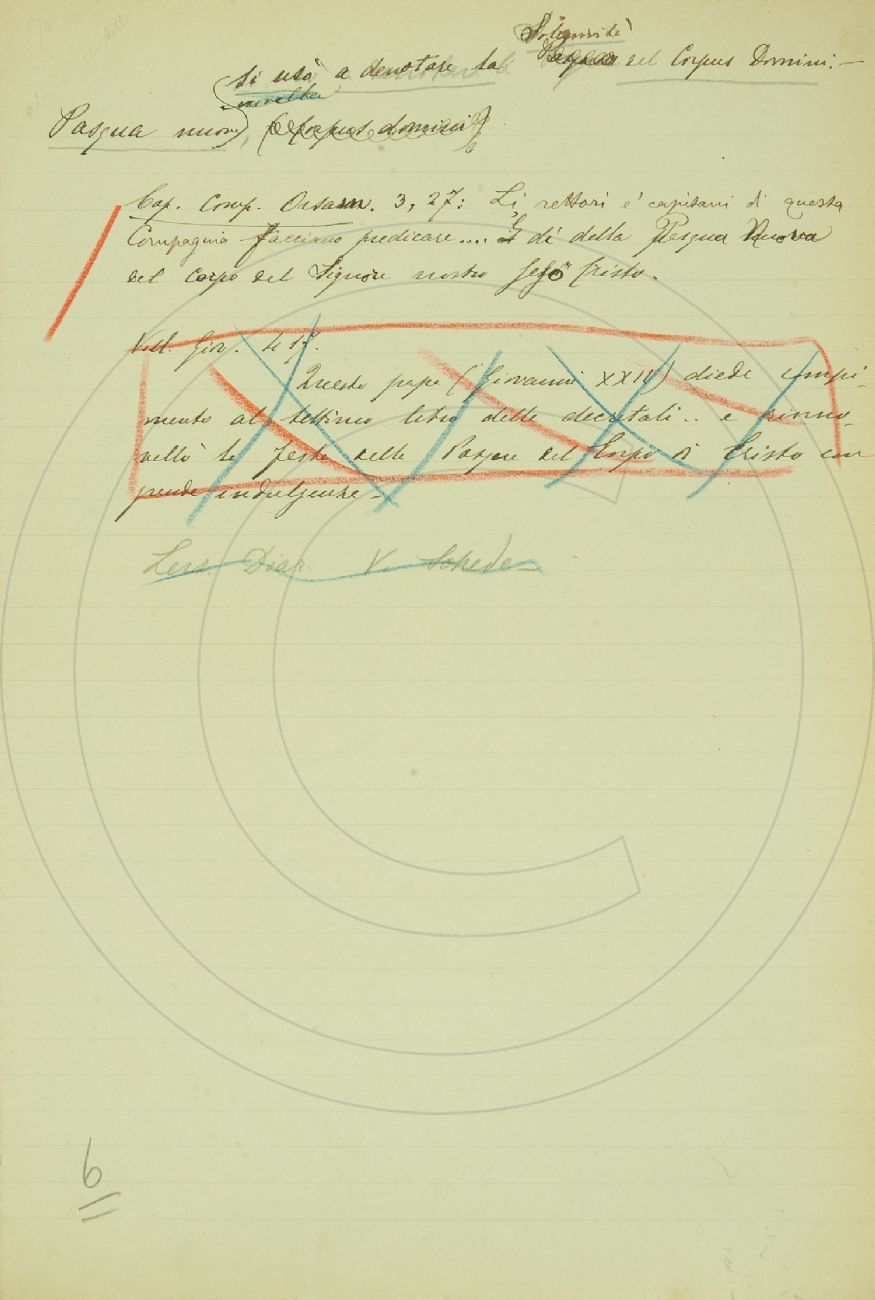 Solennità
si usò a denotare la Pasqua del Corpus Domini. —
novella
Pasqua nuova, (Corpus domini)
Cap. Comp. Orsam. 3, 27: Li rettori e' capitani di questa
Compagnia facciano predicare.... Il dì della Pasqua Nuova
del corpo del Signore nostro Gesò Cristo.
Vill. Giov. 417.
Questo papa (Giovanni XXII) diede compi-
mento al settimo libro delle decretali.. e rinno-
vellò le feste delle Pasque del Corpo di Cristo con
grande indulgenze —
Less. Diar. V. Schede
6